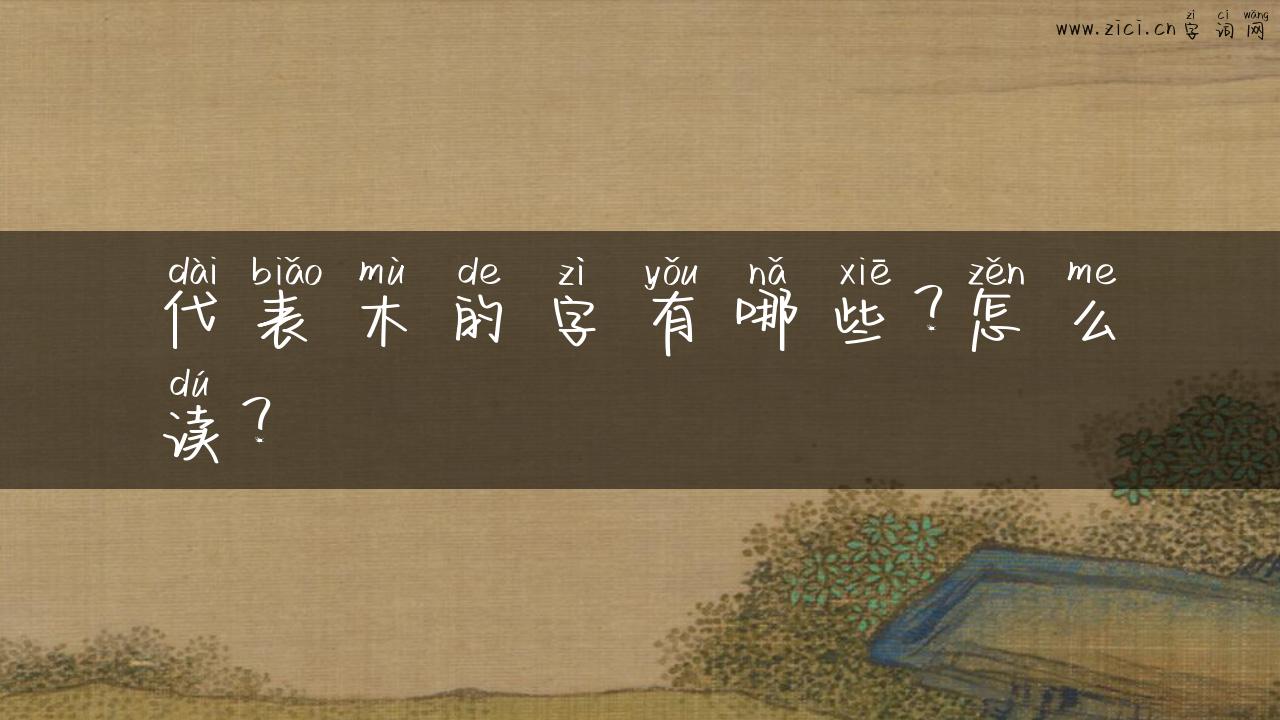 zì cí wǎng
www.zici.cn 字词网
dài biǎo mù de zì yǒu nǎ xiē zěn me
代表木的字有哪些？怎么
dú
读？